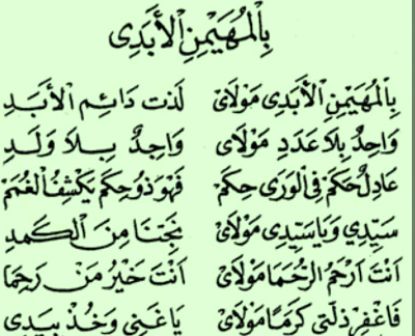 بِالْمُهَيْمِنِ الْأَبَدِى
بِالْمُهَيْمِنِ الْأَبَدِى مَوْلَاىَ لَذَت دَائِمِ الْأَبَدِ
وَاحِدٌ بِلَا عَدَدِ مَوْلَاى وَاحِدٌ بِلَا وَلَدِ
عَادِلٌ حَكَمْ فِى الْوَرٰى حِكَمْ فَهْوَ ذُو حِكَمْ يَكْشِفُ الْغُمَمْ
سَيِّدِي وَيَا سَيِّدِى مَوْلَاىَ نَجِّنَا مِنَ الْكَمَدِ
اَنْتَ اَرْحَمُ الرُّحَمَا مَوْلَاىَ اَنْتَ خَيْرُ مَنْ رَحِمَا
فَاغْفِرْ ذَلَّتِى كَرَمًا مَوْلَاىَ يَا غَنِى وَخُذْ بِيَدِى